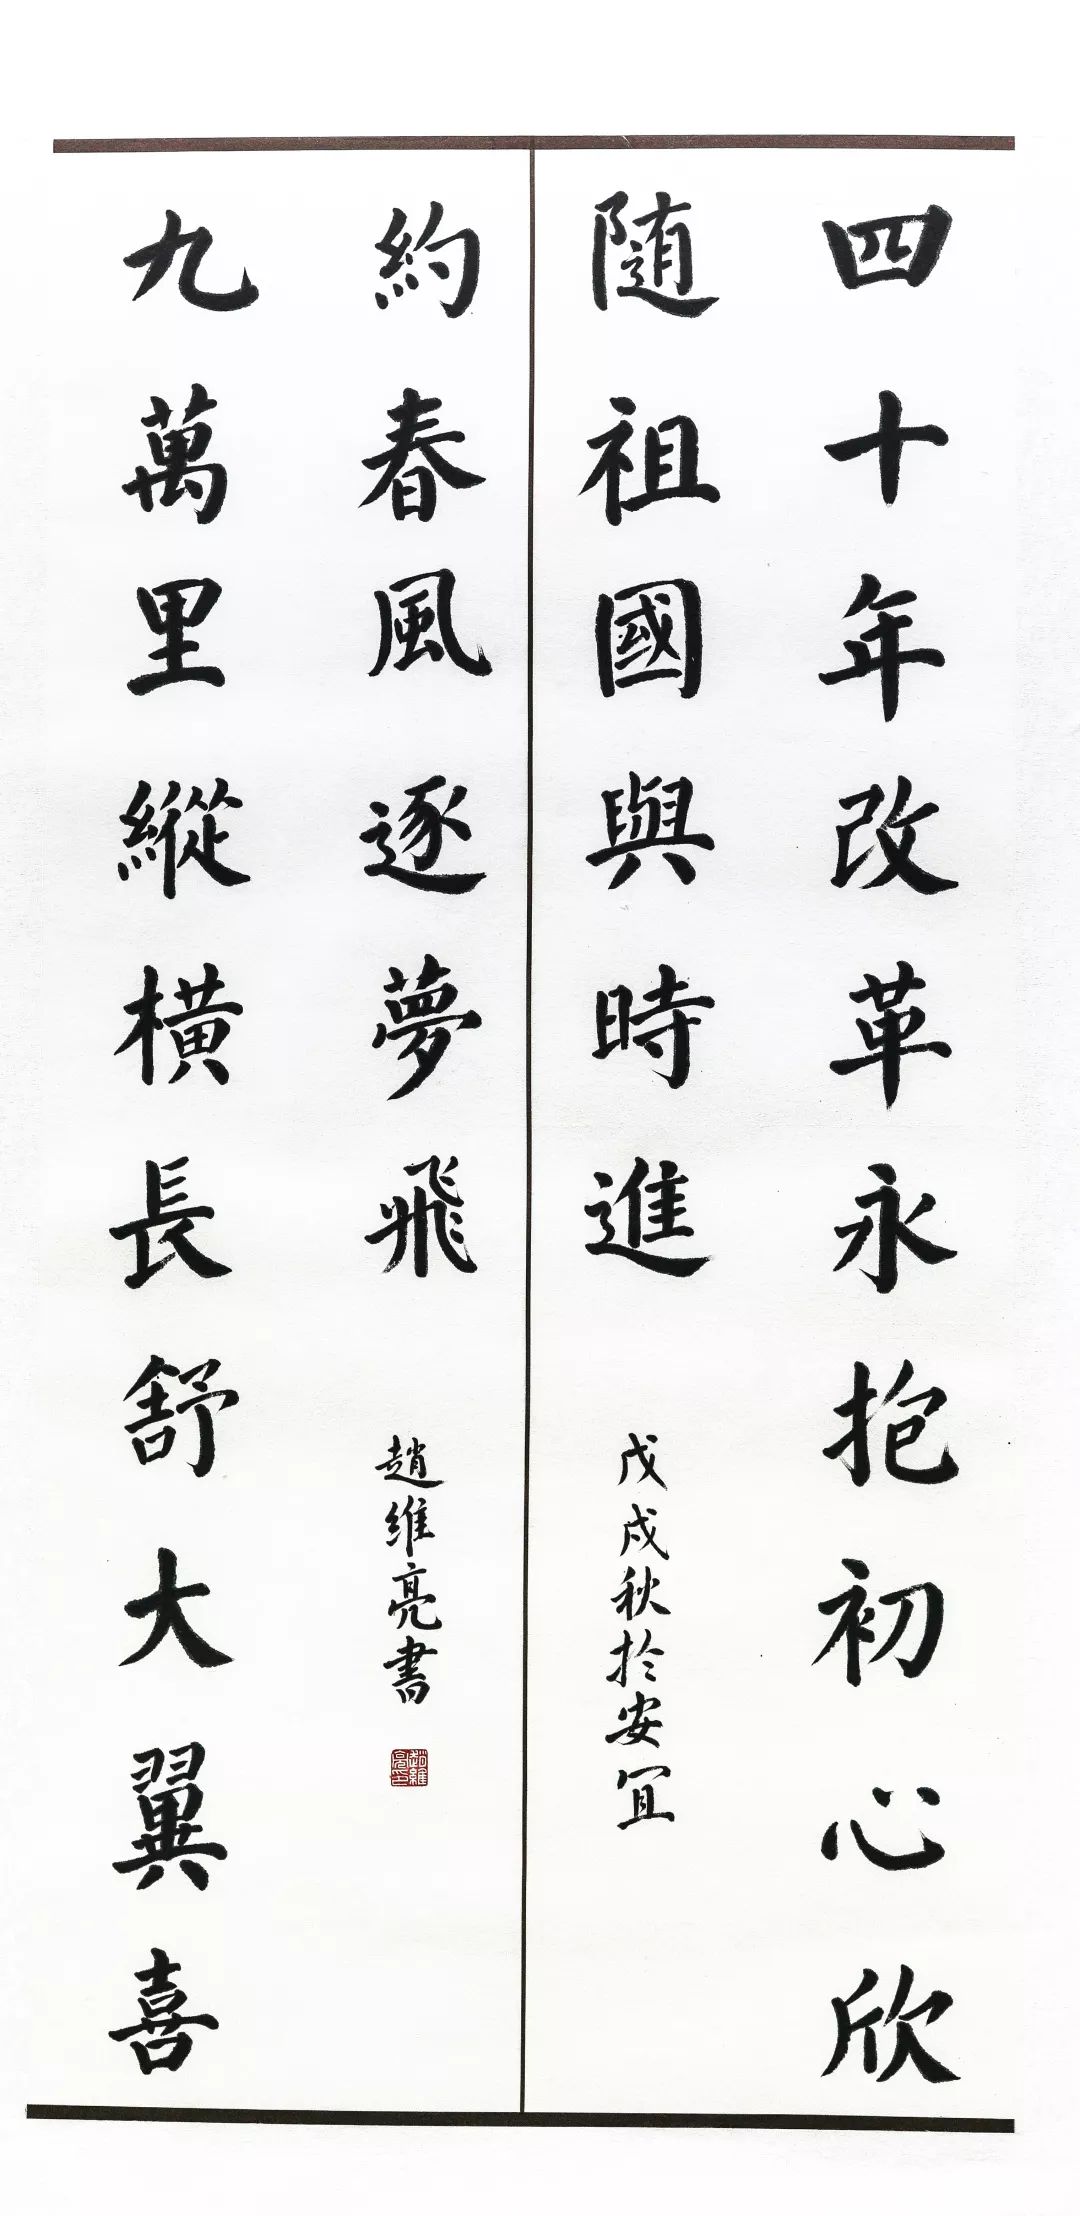 四十年改革永抱初心欣
随祖國與時進
戊戌秋於安宜
九萬里縱橫長舒大翼喜
約春風逐夢飛
趙維亮書
趙維亮印